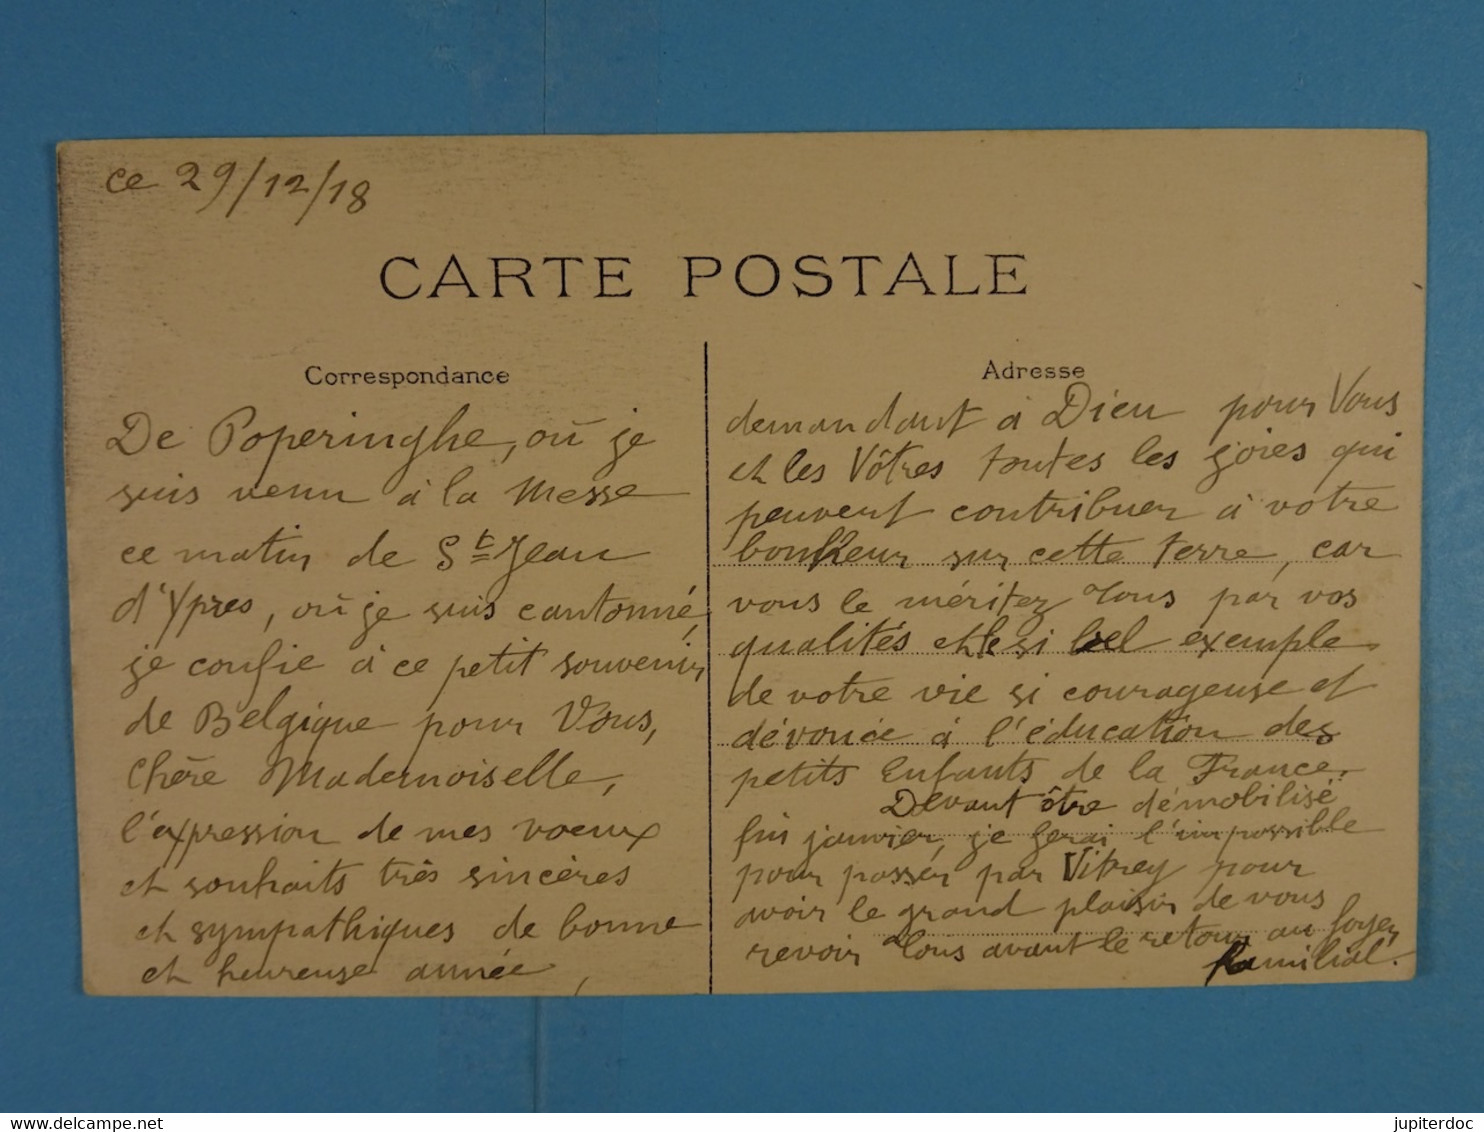 ce 29/12/18
CARTE POSTALE
Correspondance
De Poperinghe, où je
suis venu à la Messe
ce matin de St Jean
d'Ypres, où je suis cantonné,
je confie à ce petit souvenir
de Belgique pour Vous,
Chère Mademoiselle,
l'expression de mes voeux
et souhaits très sincères
et sympathiques de bonne
et heureuse année,
Adresse
demandant à Dieu pour Vous
et les Vôtres toutes les joies qui
peuvent contribuer à votre
bonheur sur cette terre, car
vous le méritez tous par vos
qualités et le si bel exemple
de votre vie si courageuse et
dévouée à l'éducation des
petits Enfants de la France.
Devant être démobilisé
fin janvier, je ferai l'impossible
pour passer par Vitrey pour
avoir le grand plaisir de vous
revoir Tous avant le retour au foyer
familial.
delcampe.net
jupiterdoc